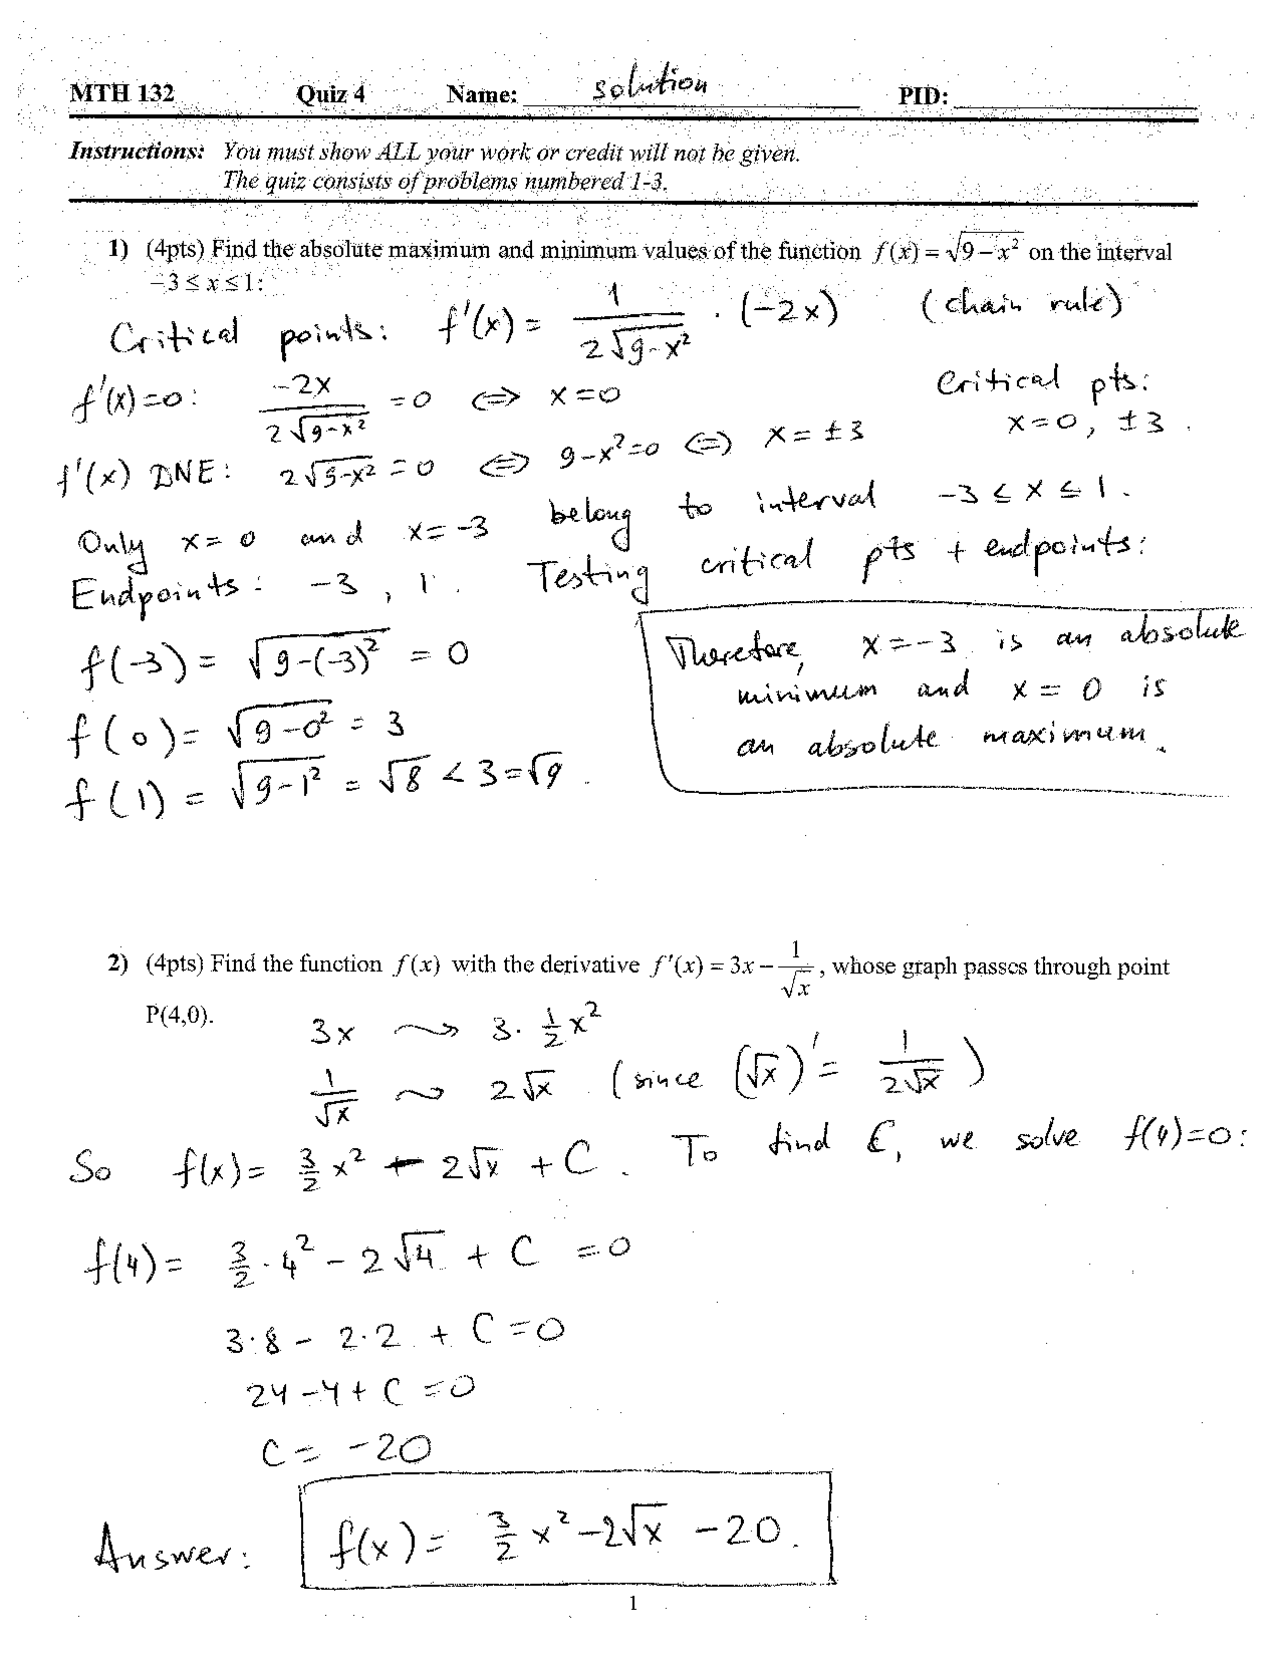 MTH 132 Quiz 4 Name: solution PID:
Instructions: You must show ALL your work or credit will not be given.
The quiz consists of problems numbered 1-3.
1) (4pts) Find the absolute maximum and minimum values of the function f(x) = √(9 – x²) on the interval
–3 ≤ x ≤ 1:
Critical points: f'(x) = 1/(2√(9-x²)) · (-2x) (chain rule)
f'(x)=0: -2x/(2√(9-x²)) = 0 ⟺ x=0 Critical pts:
x=0, ±3.
f'(x) DNE: 2√(9-x²) = 0 ⟺ 9-x²=0 ⟺ x = ±3
Only x=0 and x=-3 belong to interval -3 ≤ x ≤ 1.
Endpoints: -3, 1. Testing critical pts + endpoints:
f(-3) = √(9-(-3)²) = 0
f(0) = √(9-0²) = 3
f(1) = √(9-1²) = √8 < 3 = √9.
Therefore, x=-3 is an absolute
minimum and x = 0 is
an absolute maximum.
2) (4pts) Find the function f(x) with the derivative f'(x) = 3x – 1/√x, whose graph passes through point
P(4,0).
3x ⇝ 3·½x²
1/√x ⇝ 2√x (since (√x)' = 1/(2√x))
So f(x) = 3/2 x² - 2√x + C. To find C, we solve f(4)=0:
f(4) = 3/2 · 4² - 2√4 + C = 0
3·8 - 2·2 + C = 0
24 - 4 + C = 0
C = -20
Answer: f(x) = 3/2 x² - 2√x - 20.
1